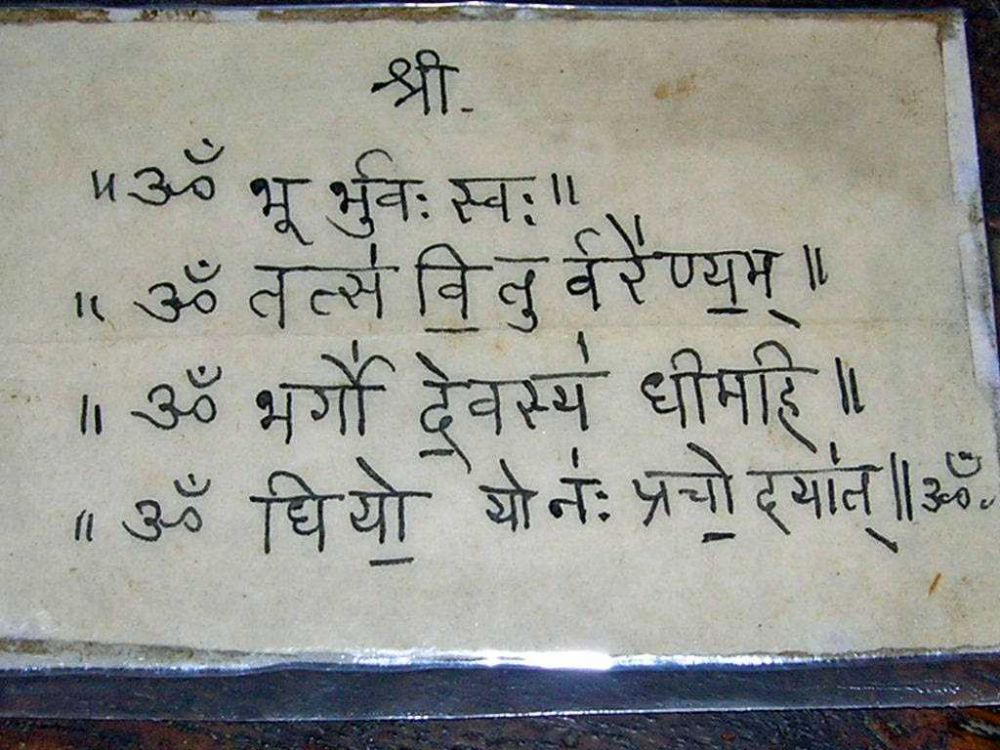 श्री.
॥ ॐ भू र्भुवः स्वः ॥
॥ ॐ तत्स॑ वि॒ तु र्वरे॑ण्य॒म् ॥
॥ ॐ भर्गो॑ दे॒वस्य॑ धीमहि ॥
॥ ॐ धियो॒ यो नः॑ प्रचो॒ दया॑त् ॥ ॐ